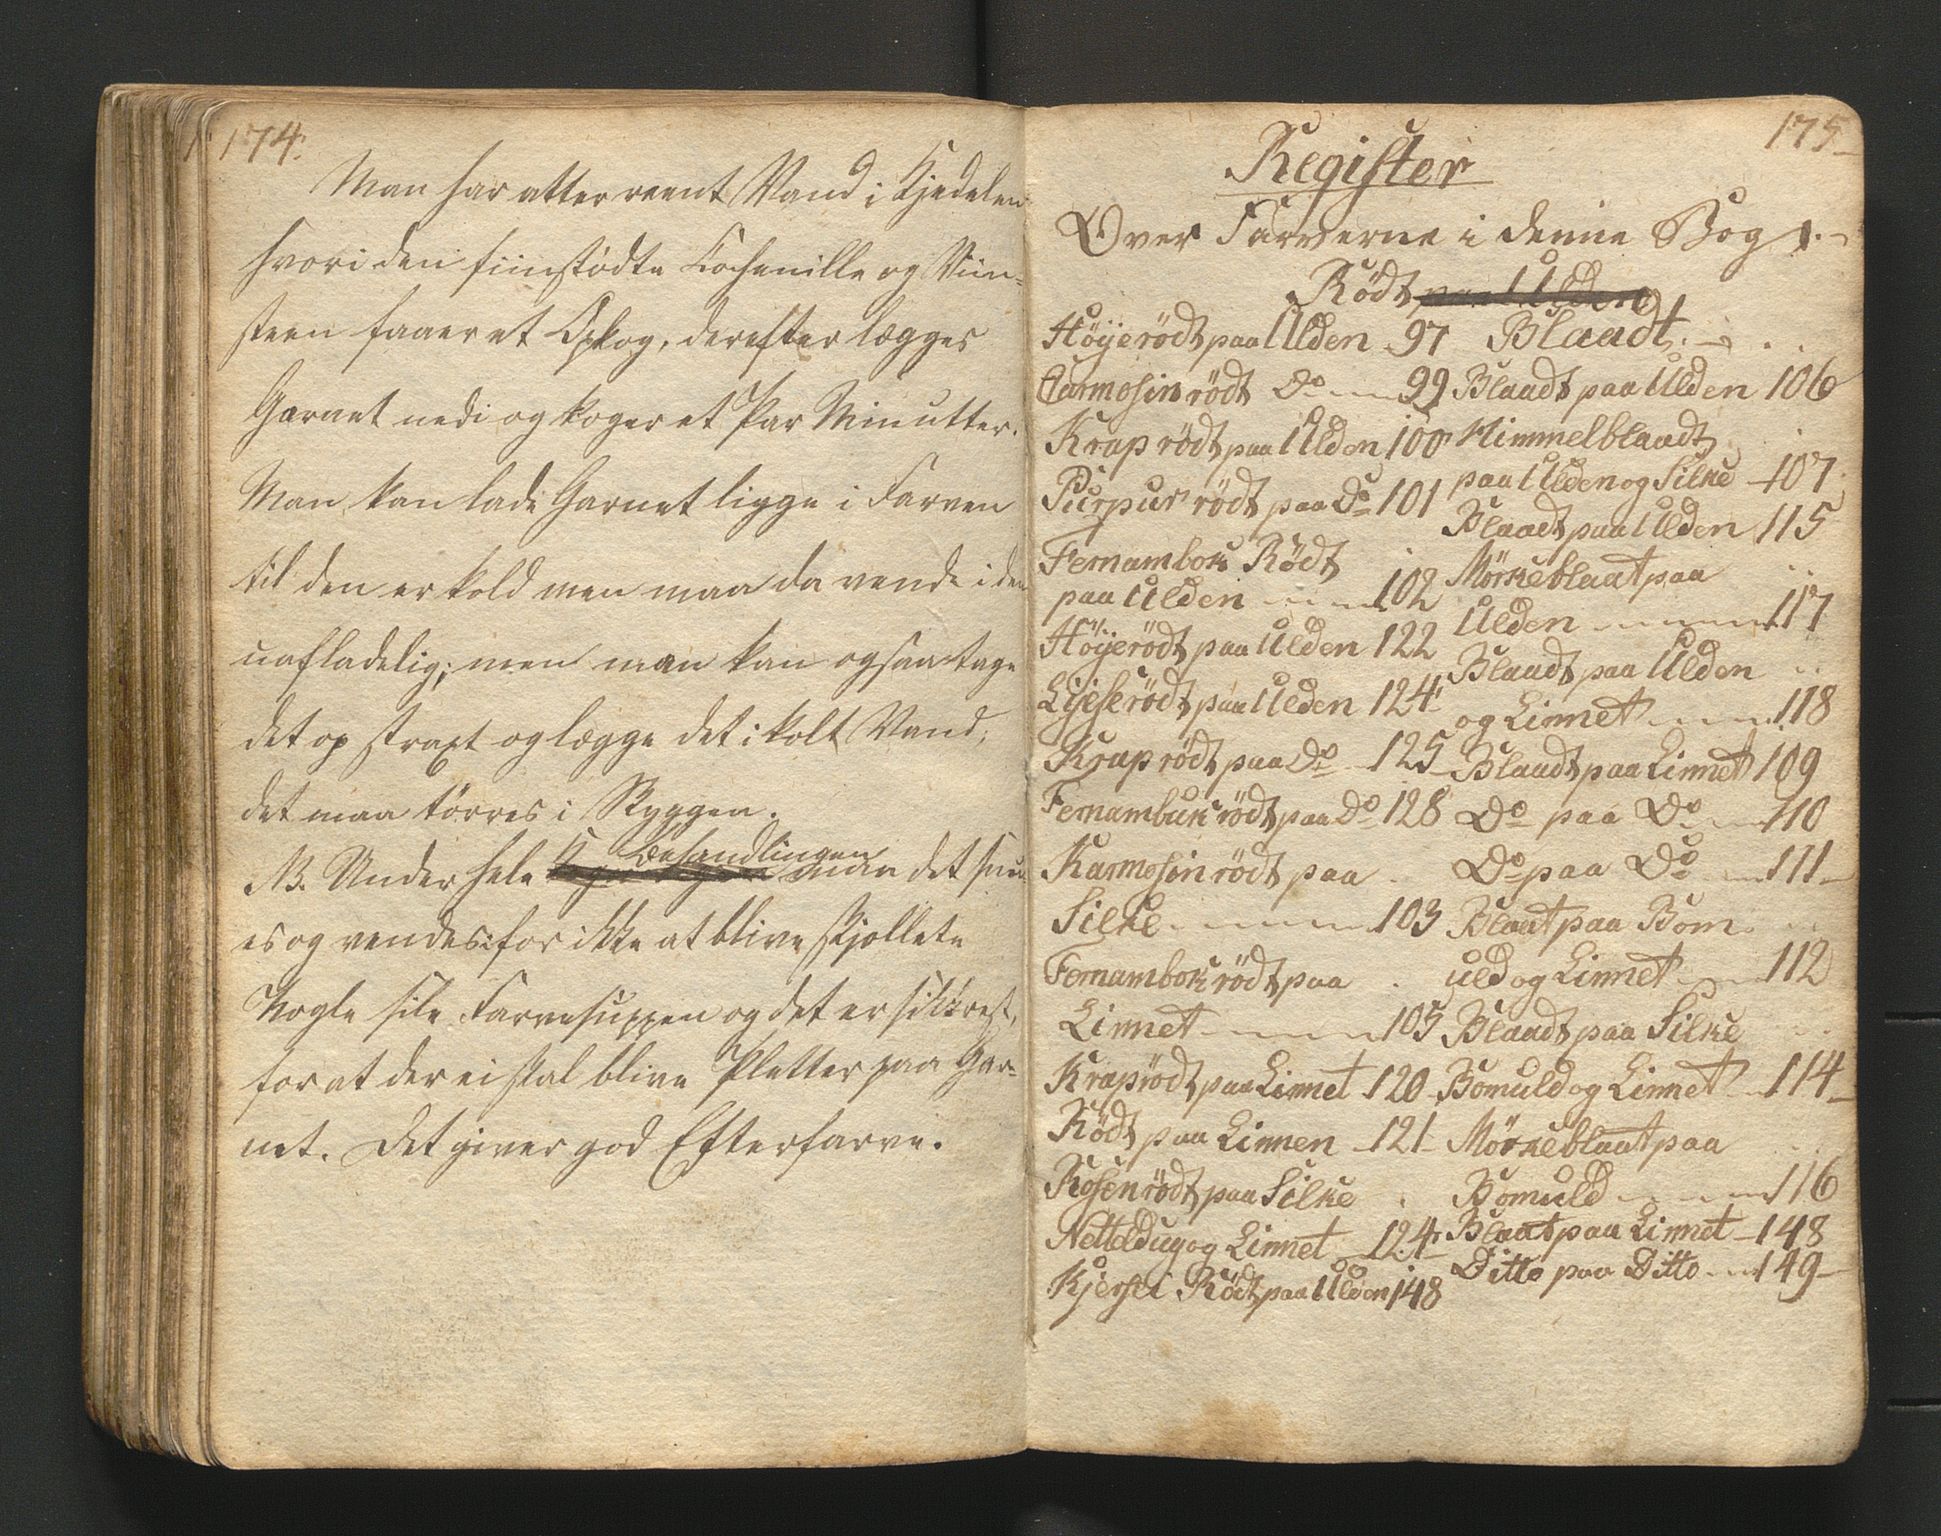 174.
Man har atter reent Vand i Kjedelen
hvori den fiinstødte Cochenille og Viin-
steen faaer et Opkog, derefter lægges
Garnet nedi og koger et Par Minutter.
Man kan lade Garnet ligge i Farven
til den er kold men maa da vende i den
uafladelig; men man kan ogsaa tage
det op straxt og lægge det i kolt Vand,
det maa tørres i Skyggen.
Behandlingen
NB. Under hele maa det snu
es og vendes: for ikke at blive skjollete
Nogle sile Farvesuppen og det er sikkrest,
for at der ei skal blive Pletter paa Gar-
net. Det giver god Efterfarve.
175
Register
Over Farverne i denne Bog
Rödt paa Ulden
Höÿerödt paa Ulden 97
Carmosin rödt Do 99
Krap rödt paa Ulden 100
Purpur rödt paa Do 101
Fernambok Rödt
paa Ulden 102
Höÿerödt paa Ulden 122
Lÿserödt paa Ulden 124
Krap rödt paa Do 125
Fernambuk rödt paa Do 128
Karmosin rödt paa
Silke 103
Fernambok rödt paa
Linnet 105
Kraprödt paa Linnet 120
Rödt paa Linnen 121
Rosenrödt paa Silke
Netteldug og Linnet 124
Kjersei Rödt paa Ulden 148
Blaadt
Blaadt paa Ulden 106
Himmelblaadt
paa Ulden og Silke 107
Blaadt paa Ulden 115
Mörkeblaat paa
Ulden 117
Blaadt paa Ulden
og Linnet 118
Blaadt paa Linnet 109
Do paa Do 110
Do paa Do 111
Blaat paa Bom
uld og Linnet 112
Blaadt paa Silke
Bomuld og Linnet 114
Mörkeblaat paa
Bomuld 116
Blaat paa Linnet 148
Ditto paa Ditto 149